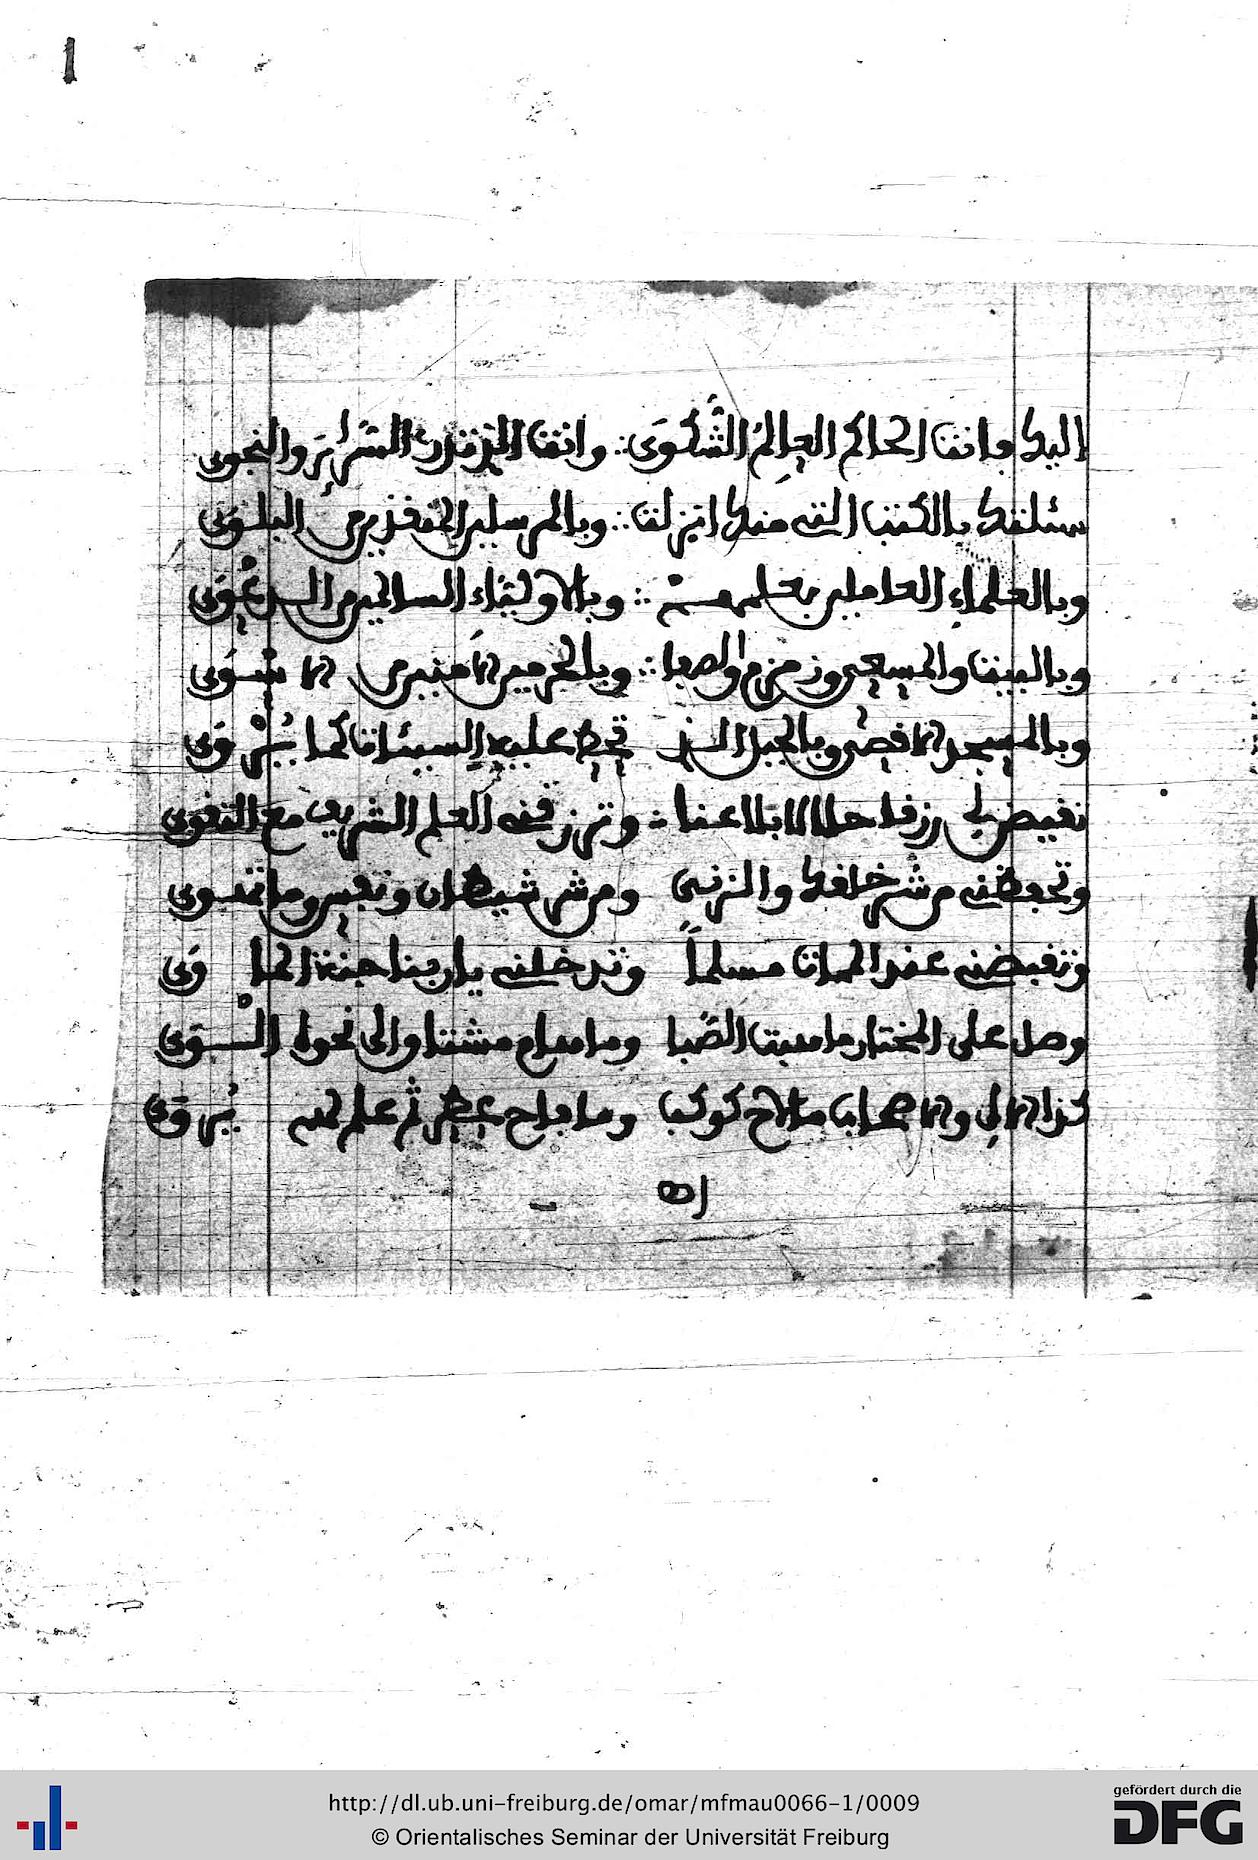 اليك وانت الحاكم العالم الشكوى ∴ وانت الذي تدري السرائر والنجوى
سئلتك بالكتب التي منك انزلت ∴ وبالمرسلين المنقذين من البلوى
وبالعلماء العاملين بعلمهم ∴ وبالاولياء السالمين من الدعوى
وبالبيت والمسعى وزمزم والصفا ∴ وبالحرمين الامنين من الاسوى
وبالمسجد الاقصى وبالجبل الذي تحط عليه السيئات كما يروى
تقيض لي رزقا حلالا بلا عنا ∴ وترزقني العلم الشريف مع التقوى
وتحفظني من شر خلقك والزنى ومن شر شيطان ونفسي وما تهوى
وتقبضني عند الممات مسلما وتدخلني يا ربنا جنة الماوى
وصل على المختار ما هبت الصبا وما هام مشتاو الى نحوك السوى
كذا الال والاصحاب ما لاح كوكب وما فاح عطر ثم علم له يروى
اه
1
http://dl.ub.uni-freiburg.de/omar/mfmau0066-1/0009
© Orientalisches Seminar der Universität Freiburg
gefördert durch die
DFG